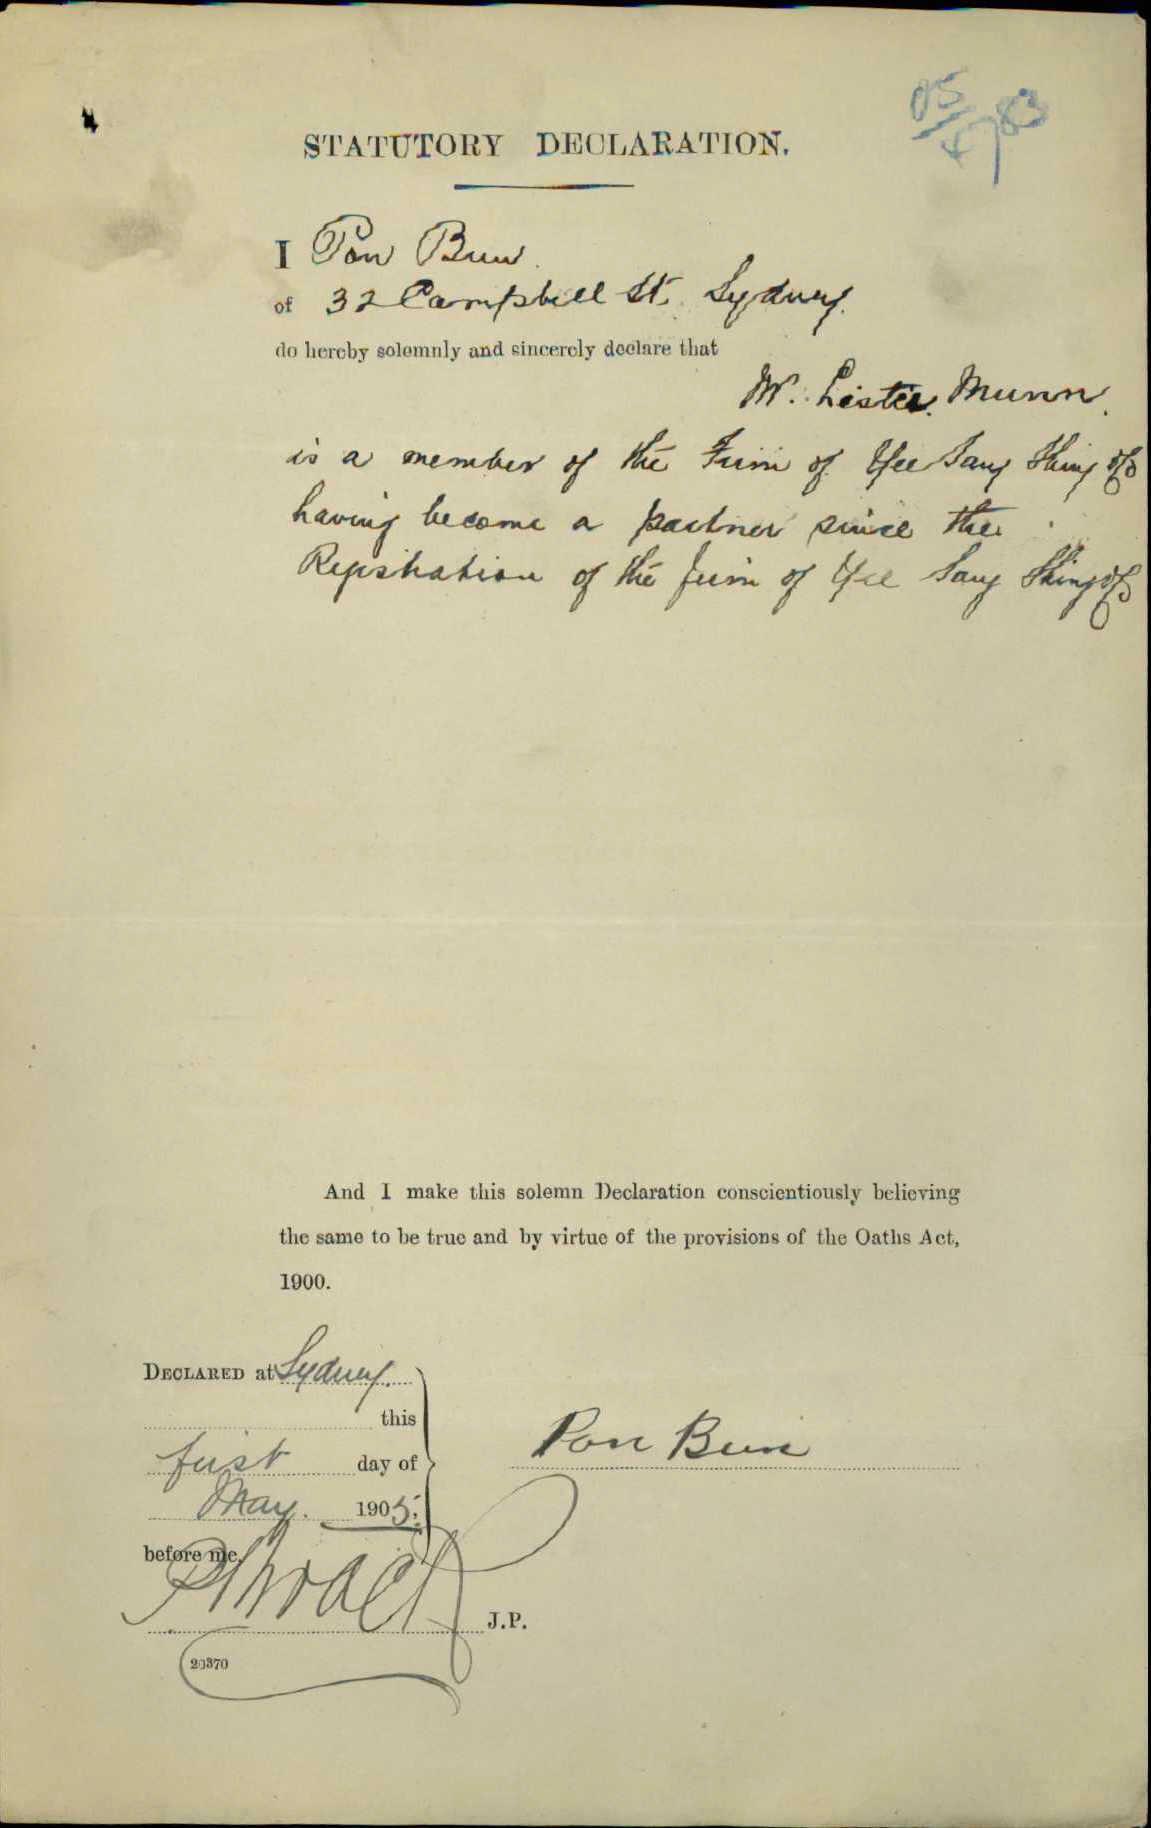 STATUTORY DECLARATION.
I Pon Bun
of 32 Campbell St. Sydney.
do hereby solemnly and sincerely declare that
W. Munn.
is a member of the Firm of Yee Sang Shing & Co
having become a partner since the
Registration of the firm of Yee Sang Shing & Co
And I make this solemn Declaration conscientiously believing
the same to be true and by virtue of the provisions of the Oaths Act,
1900.
DECLARED at Sydney.
this
first day of
May. 1905.
Pon Bun
before me,
J.P.
20370